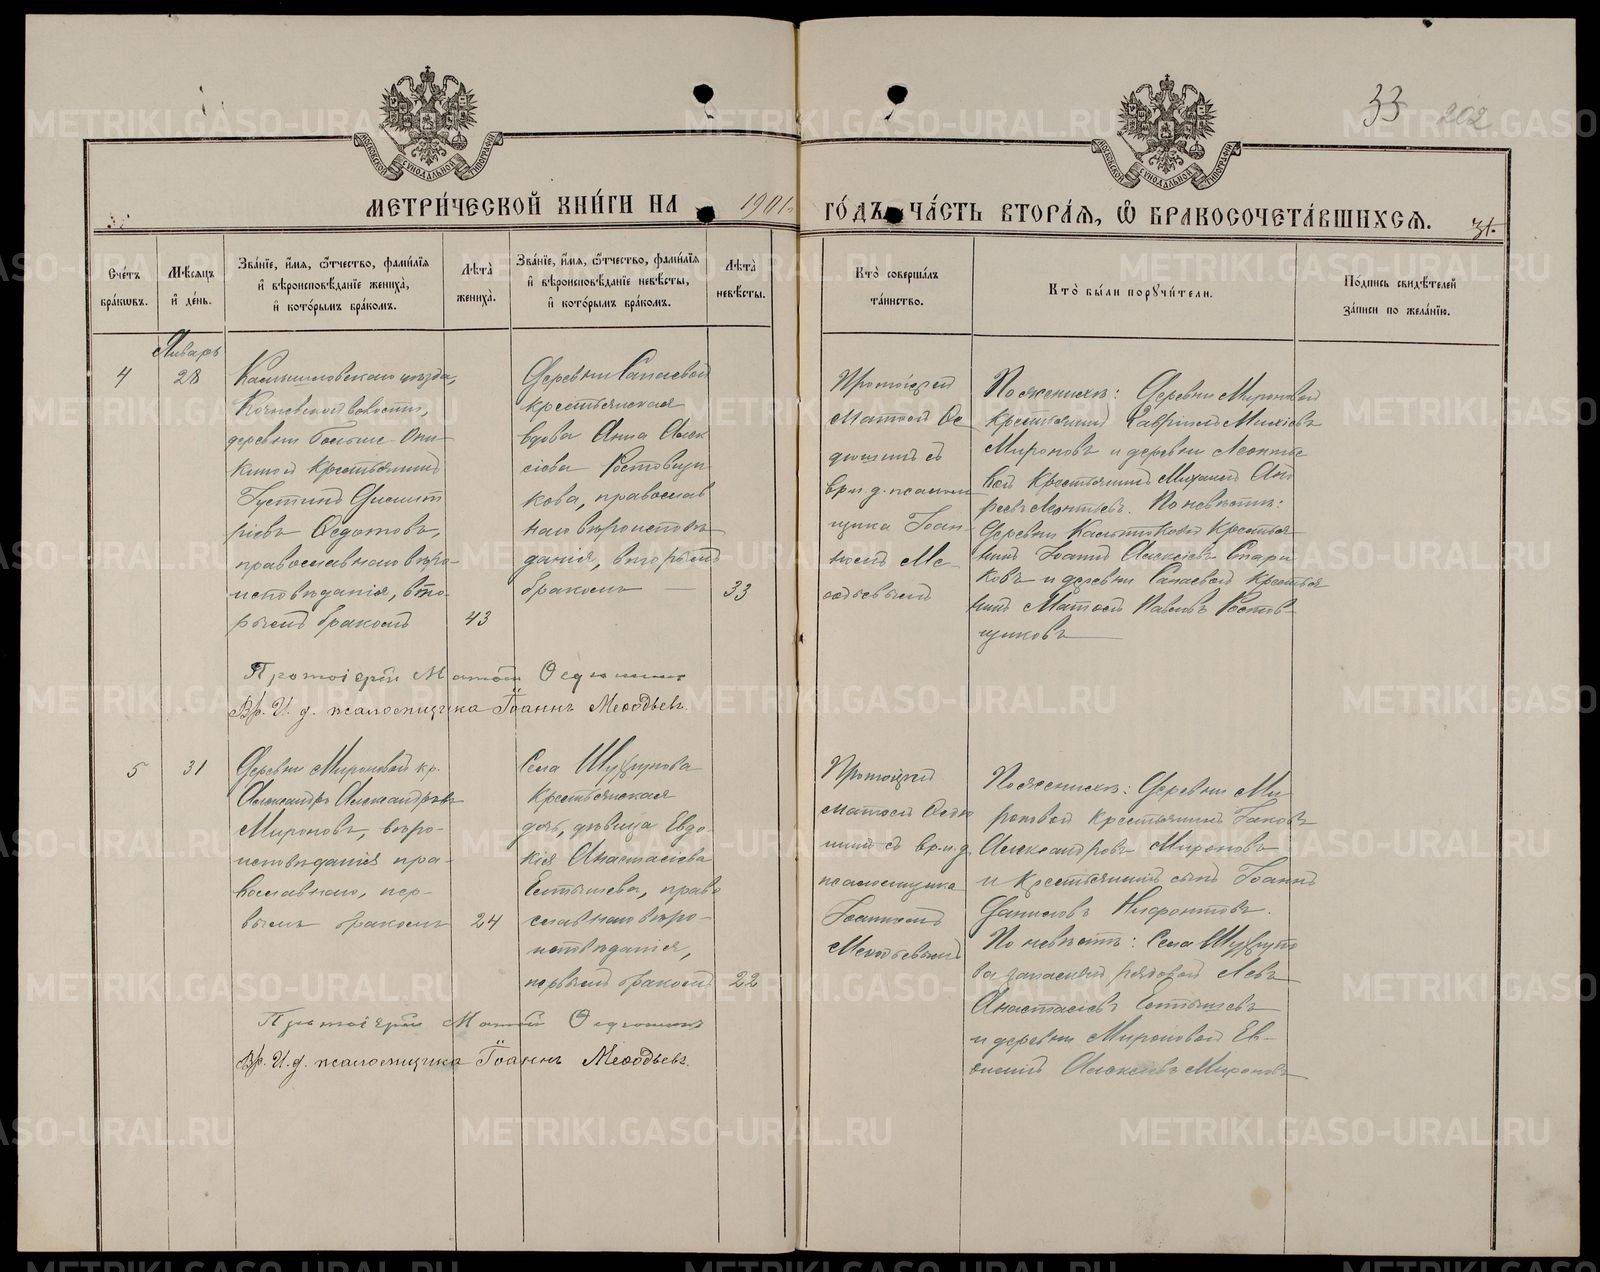 33 202
МОСКОВСКОЙ СѴНОДАЛЬНОЙ ТИПОГРАФІИ
МОСКОВСКОЙ СѴНОДАЛЬНОЙ ТИПОГРАФІИ
МЕТРИ́ЧЕСКОЙ КНИ́ГИ НА 1901 ГО́ДЪ, ЧА́СТЬ ВТОРА́Я, Ѿ БРАКОСОЧЕТА́ВШИХСЯ. 31.
Счетъ браковъ.
Мѣсяцъ и день.
Званіе, имя, отчество, фамилія и вѣроисповѣданіе жениха, и которымъ бракомъ.
Лѣта жениха.
Званіе, имя, отчество, фамилія и вѣроисповѣданіе невѣсты, и которымъ бракомъ.
Лѣта невѣсты.
Кто совершалъ таинство.
Кто были поручители.
Подпись свидѣтелей записи по желанію.
Январь
4
28
Камышловскаго уѣзда,
волости,
деревни Больше-Они-
киной крестьянинъ
Густинъ Димитр
ріевъ Ѳедотовъ,
православнаго вѣро-
исповѣданія, вто-
рымъ бракомъ
43
Деревни Сапаевой
крестьянская
вдова Анна Алек
сіева Ростовщи
кова, православ
наго вѣроисповѣ
данія, вторымъ
бракомъ —
33
Протоіерей
Матѳій Ѳе
дюшинъ съ
вр. и. д. псалом
щика Іоан
номъ Ме-
ѳодьевымъ
По женихѣ: Деревни Мироновой
крестьянинъ Гавріилъ
Мироновъ и деревни Леонтье
вой крестьянинъ Михаилъ Анд
реевъ Леонтьевъ. По невѣстѣ:
Деревни крестья
нинъ Іоаннъ Алексіевъ Стари
ковъ и деревни Сапаевой крестья
нинъ Матѳій Павловъ Ростов-
щиковъ
Протоіерей Матѳій Ѳедюшинъ
Вр. И. д. псаломщика Іоаннъ Меѳодьевъ.
5
31
Деревни Мироновой кр.
Александръ Александровъ
Мироновъ, вѣро-
исповѣданія пра-
вославнаго, пер-
вымъ бракомъ
24
Села
крестьянская
дочь, дѣвица Евдо-
кія Анастасіева
Естьшева, право
славнаго вѣро-
исповѣданія,
первымъ бракомъ
22
Протоіерей
Матѳій Ѳедю
шинъ съ вр. и. д.
псаломщика
Іоанномъ
Меѳодьевымъ
По женихѣ: Деревни Ми
роновой крестьянинъ Іаковъ
Александровъ Мироновъ
и крестьянскій сынъ Іоаннъ
Даниловъ Нифонтовъ.
По невѣстѣ: Села
ва запасный рядовой Левъ
Анастасіевъ Естьшевъ
и деревни Мироновой Ев-
ѳимій Алексѣевъ Мироновъ
Протоіерей Матѳій Ѳедюшинъ
Вр. И. д. псаломщика Іоаннъ Меѳодьевъ.
METRIKI.GASO-URAL.RU